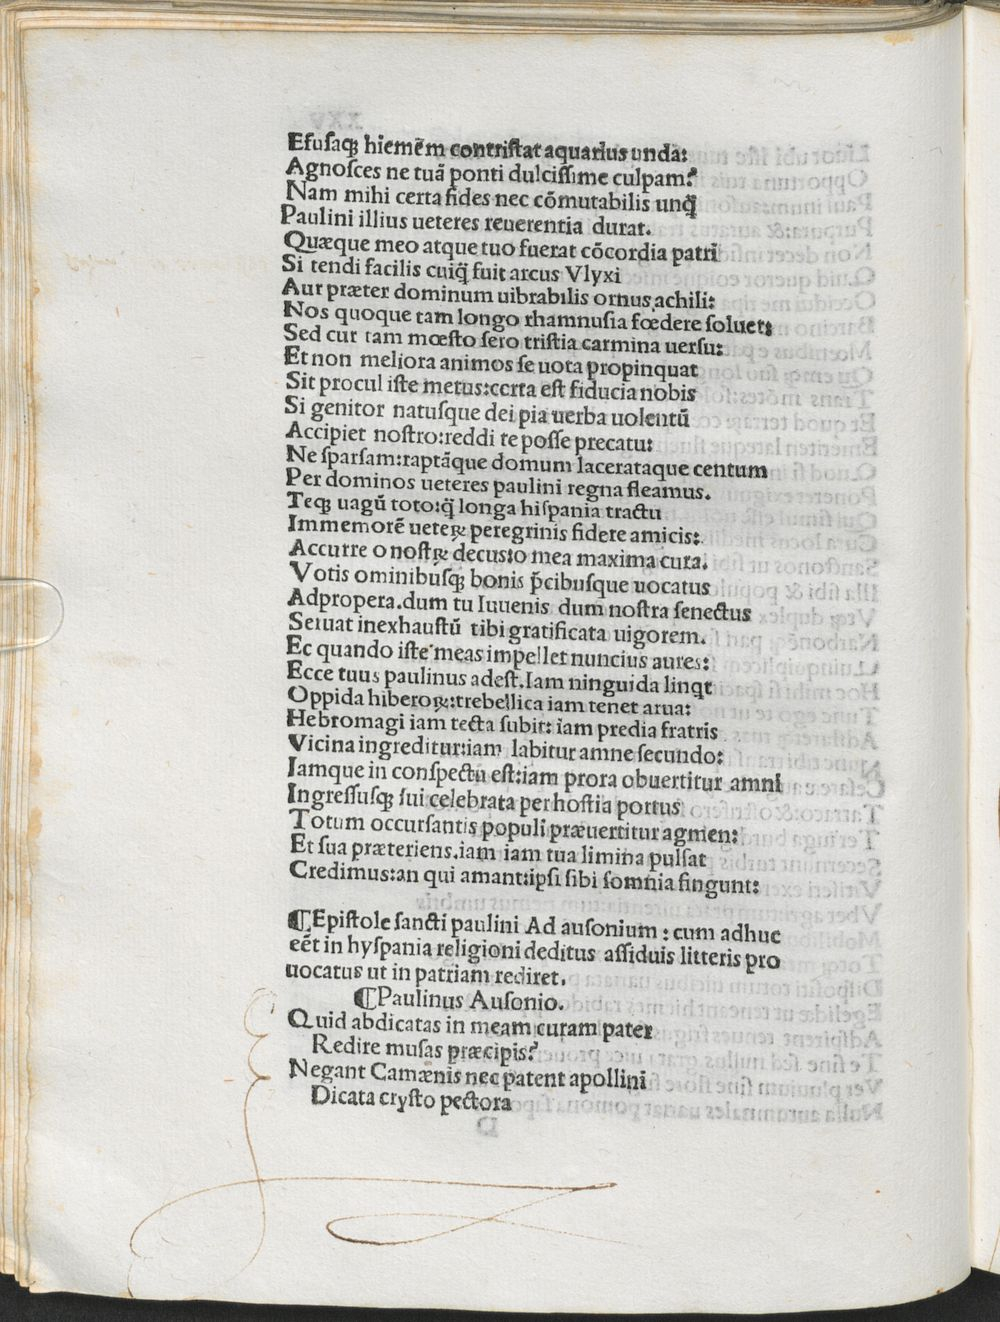 Efusaqꝫ hiemēm contristat aquarius unda:
Agnosces ne tuā ponti dulcissime culpam?
Nam mihi certa fides nec cōmutabilis unq̄
Paulini illius ueteres reuerentia durat.
Quæque meo atque tuo fuerat cōcordia patri
Si tendi facilis cuiq̄ fuit arcus Vlyxi
Aut præter dominum uibrabilis ornus achili:
Nos quoque tam longo rhamnusia fœdere soluet:
Sed cur tam mœsto sero tristia carmina uersu:
Et non meliora animos se uota propinquat
Sit procul iste metus:certa est fiducia nobis
Si genitor natusque dei pia uerba uolentū
Accipiet nostro:reddi te posse precatu:
Ne sparsam:raptāque domum lacerataque centum
Per dominos ueteres paulini regna fleamus.
Teqꝫ uagū toto:q̄ longa hispania tractu
Immemorē ueteꝝ peregrinis fidere amicis:
Accurre o nostꝝ decus:o mea maxima cura.
Votis ominibusqꝫ bonis p̄cibusque uocatus
Adpropera.dum tu Iuuenis dum nostra senectus
Seruat inexhaustū tibi gratificata uigorem.
Ec quando iste meas impellet nuncius aures:
Ecce tuus paulinus adest.Iam ninguida linqt
Oppida hiberoꝝ:trebellica iam tenet arua:
Hebromagi iam tecta subit: iam predia fratris
Vicina ingreditur:iam labitur amne secundo:
Iamque in conspectu est:iam prora obuertitur amni
Ingressusqꝫ sui celebrata per hostia portus
Totum occursantis populi præuertitur agmen:
Et sua præteriens.iam iam tua limina pulsat
Credimus:an qui amant:ipsi sibi somnia fingunt:
¶Epistole sancti paulini Ad ausonium : cum adhuc
eēt in hyspania religioni deditus assiduis litteris pro
uocatus ut in patriam rediret.
¶Paulinus Ausonio.
Quid abdicatas in meam curam pater
Redire musas præcipis?
Negant Camænis nec patent apollini
Dicata crysto pectora